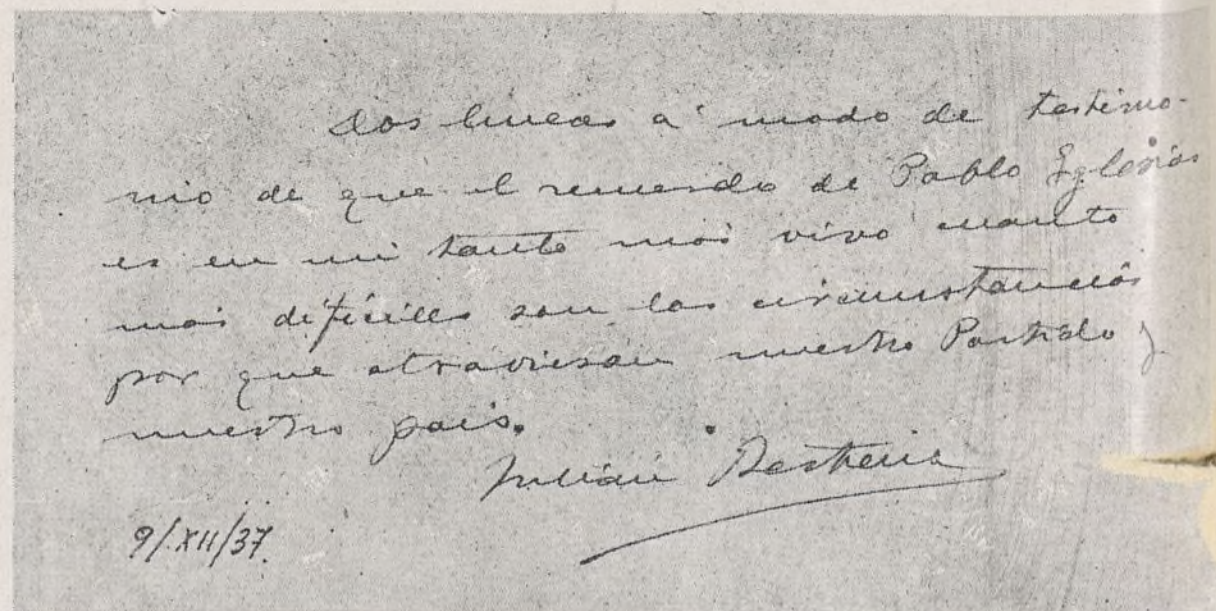 Dos lineas a modo de testimo-
nio de que el recuerdo de Pablo Iglesias
es en mi tanto más vivo cuanto
más difíciles son las circunstancias
por que atraviesan nuestro Partido y
nuestro país.
Julián Besteiro
9/XII/37.